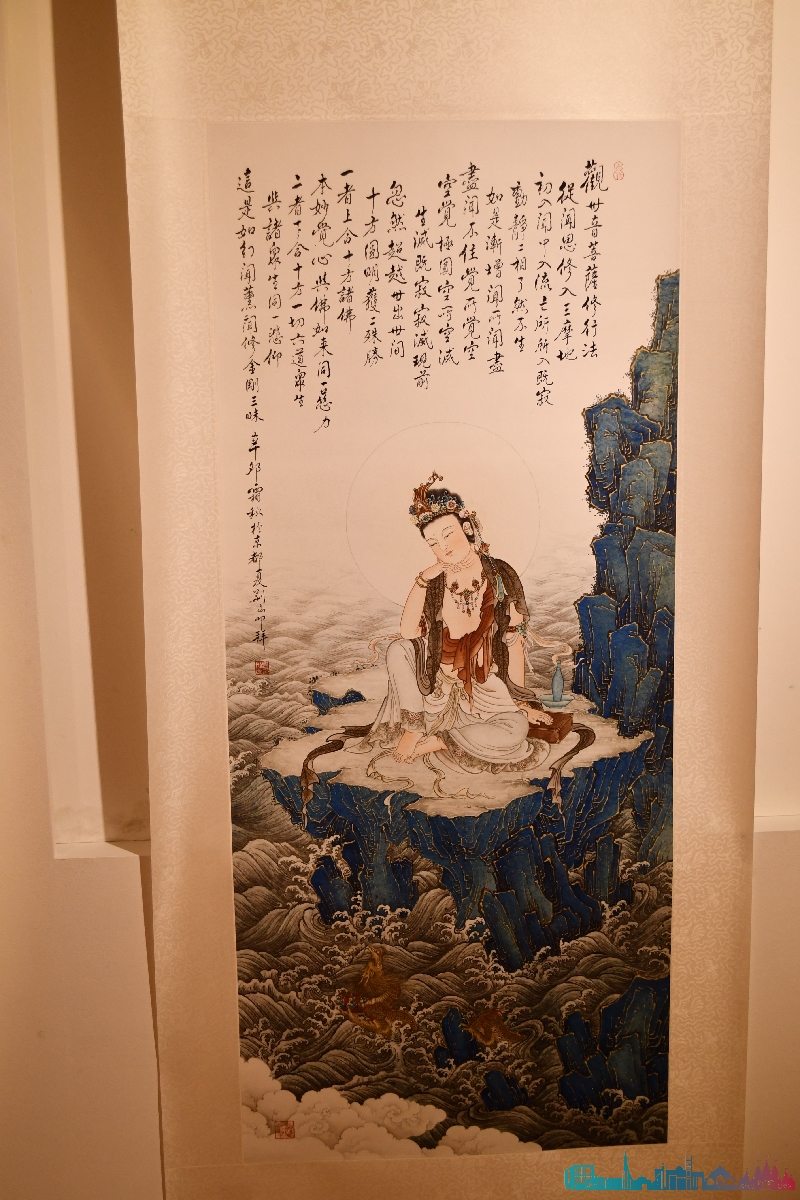 觀世音菩薩修行法
從聞思修入三摩地
初入聞中入流亡所所入既寂
動靜二相了然不生
如是漸增聞所聞盡
盡聞不住覺所覺空
空覺極圓空所空滅
生滅既寂寂滅現前
忽然超越世出世間
十方圓明獲二殊勝
一者上合十方諸佛
本妙覺心與佛如来同一慈力
二者下合十方一切六道眾生
與諸眾生同一悲仰
這是如幻聞薰聞修金剛三昧 辛卯霜秋於京都夏荊山叩拜